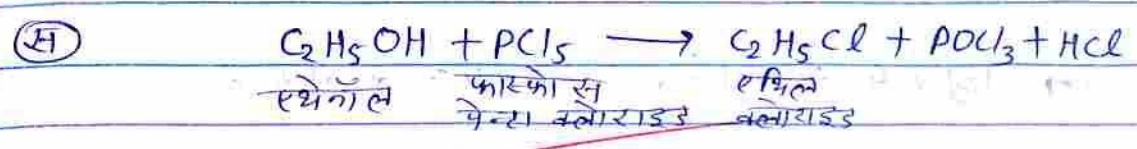 (स) C₂H₅OH + PCl₅ ⟶ C₂H₅Cl + POCl₃ + HCl
एथेनॉल फास्फो स एथिल
पेन्टा क्लोराइड क्लोराइड